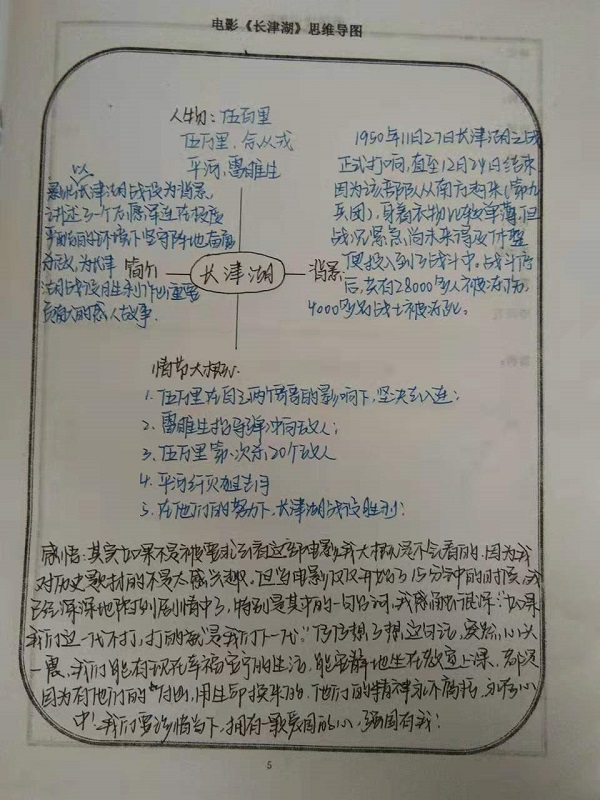 电影《长津湖》思维导图
人物:伍百里
伍万里,余从戎
平河,雷睢生
以
长津湖战役为背景,
讲述了一个志愿军连队在极度
环境下坚守阵地奋勇
杀敌,为长津
湖战役胜利作出重要
贡献的感人故事.
简介
长津湖
背景
1950年11月27日长津湖之战
正式打响,直至12月24日结束
因为该部队从南方构来(第九
兵团),身着衣物比较单薄,但
战况紧急,尚未来得及休整
便投入到了战斗中,战斗前
后,共有28000多人被冻伤,
4000多名战士被冻死。
情节大概:
1.伍万里在自己两个哥哥的影响下,坚决入连;
2.雷睢生指导弹冲向敌人;
3.伍万里第一次杀20个敌人
4.平河狙击手
5.在他们的努力下,长津湖战役胜利!
感悟:其实如果不是被要求看这部电影,我大概是不会看的,因为我
对历史题材的不是太感兴趣,但当电影仅仅开始了15分钟的时候,我
已经深深地陷到剧情中了,特别是其中的一句台词,我感触很深:“如果
我们这一代不打,打的就是我们下一代。”仔仔想了想这句话,实际,心头
一震,我们能有现在幸福安宁的生活,能安静地坐在教室上课,都是
因为有他们的付出,用生命换来的,他们的精神永不腐朽,永存心
中!我们要珍惜当下,拥有一颗爱国的心,强国有我!
5